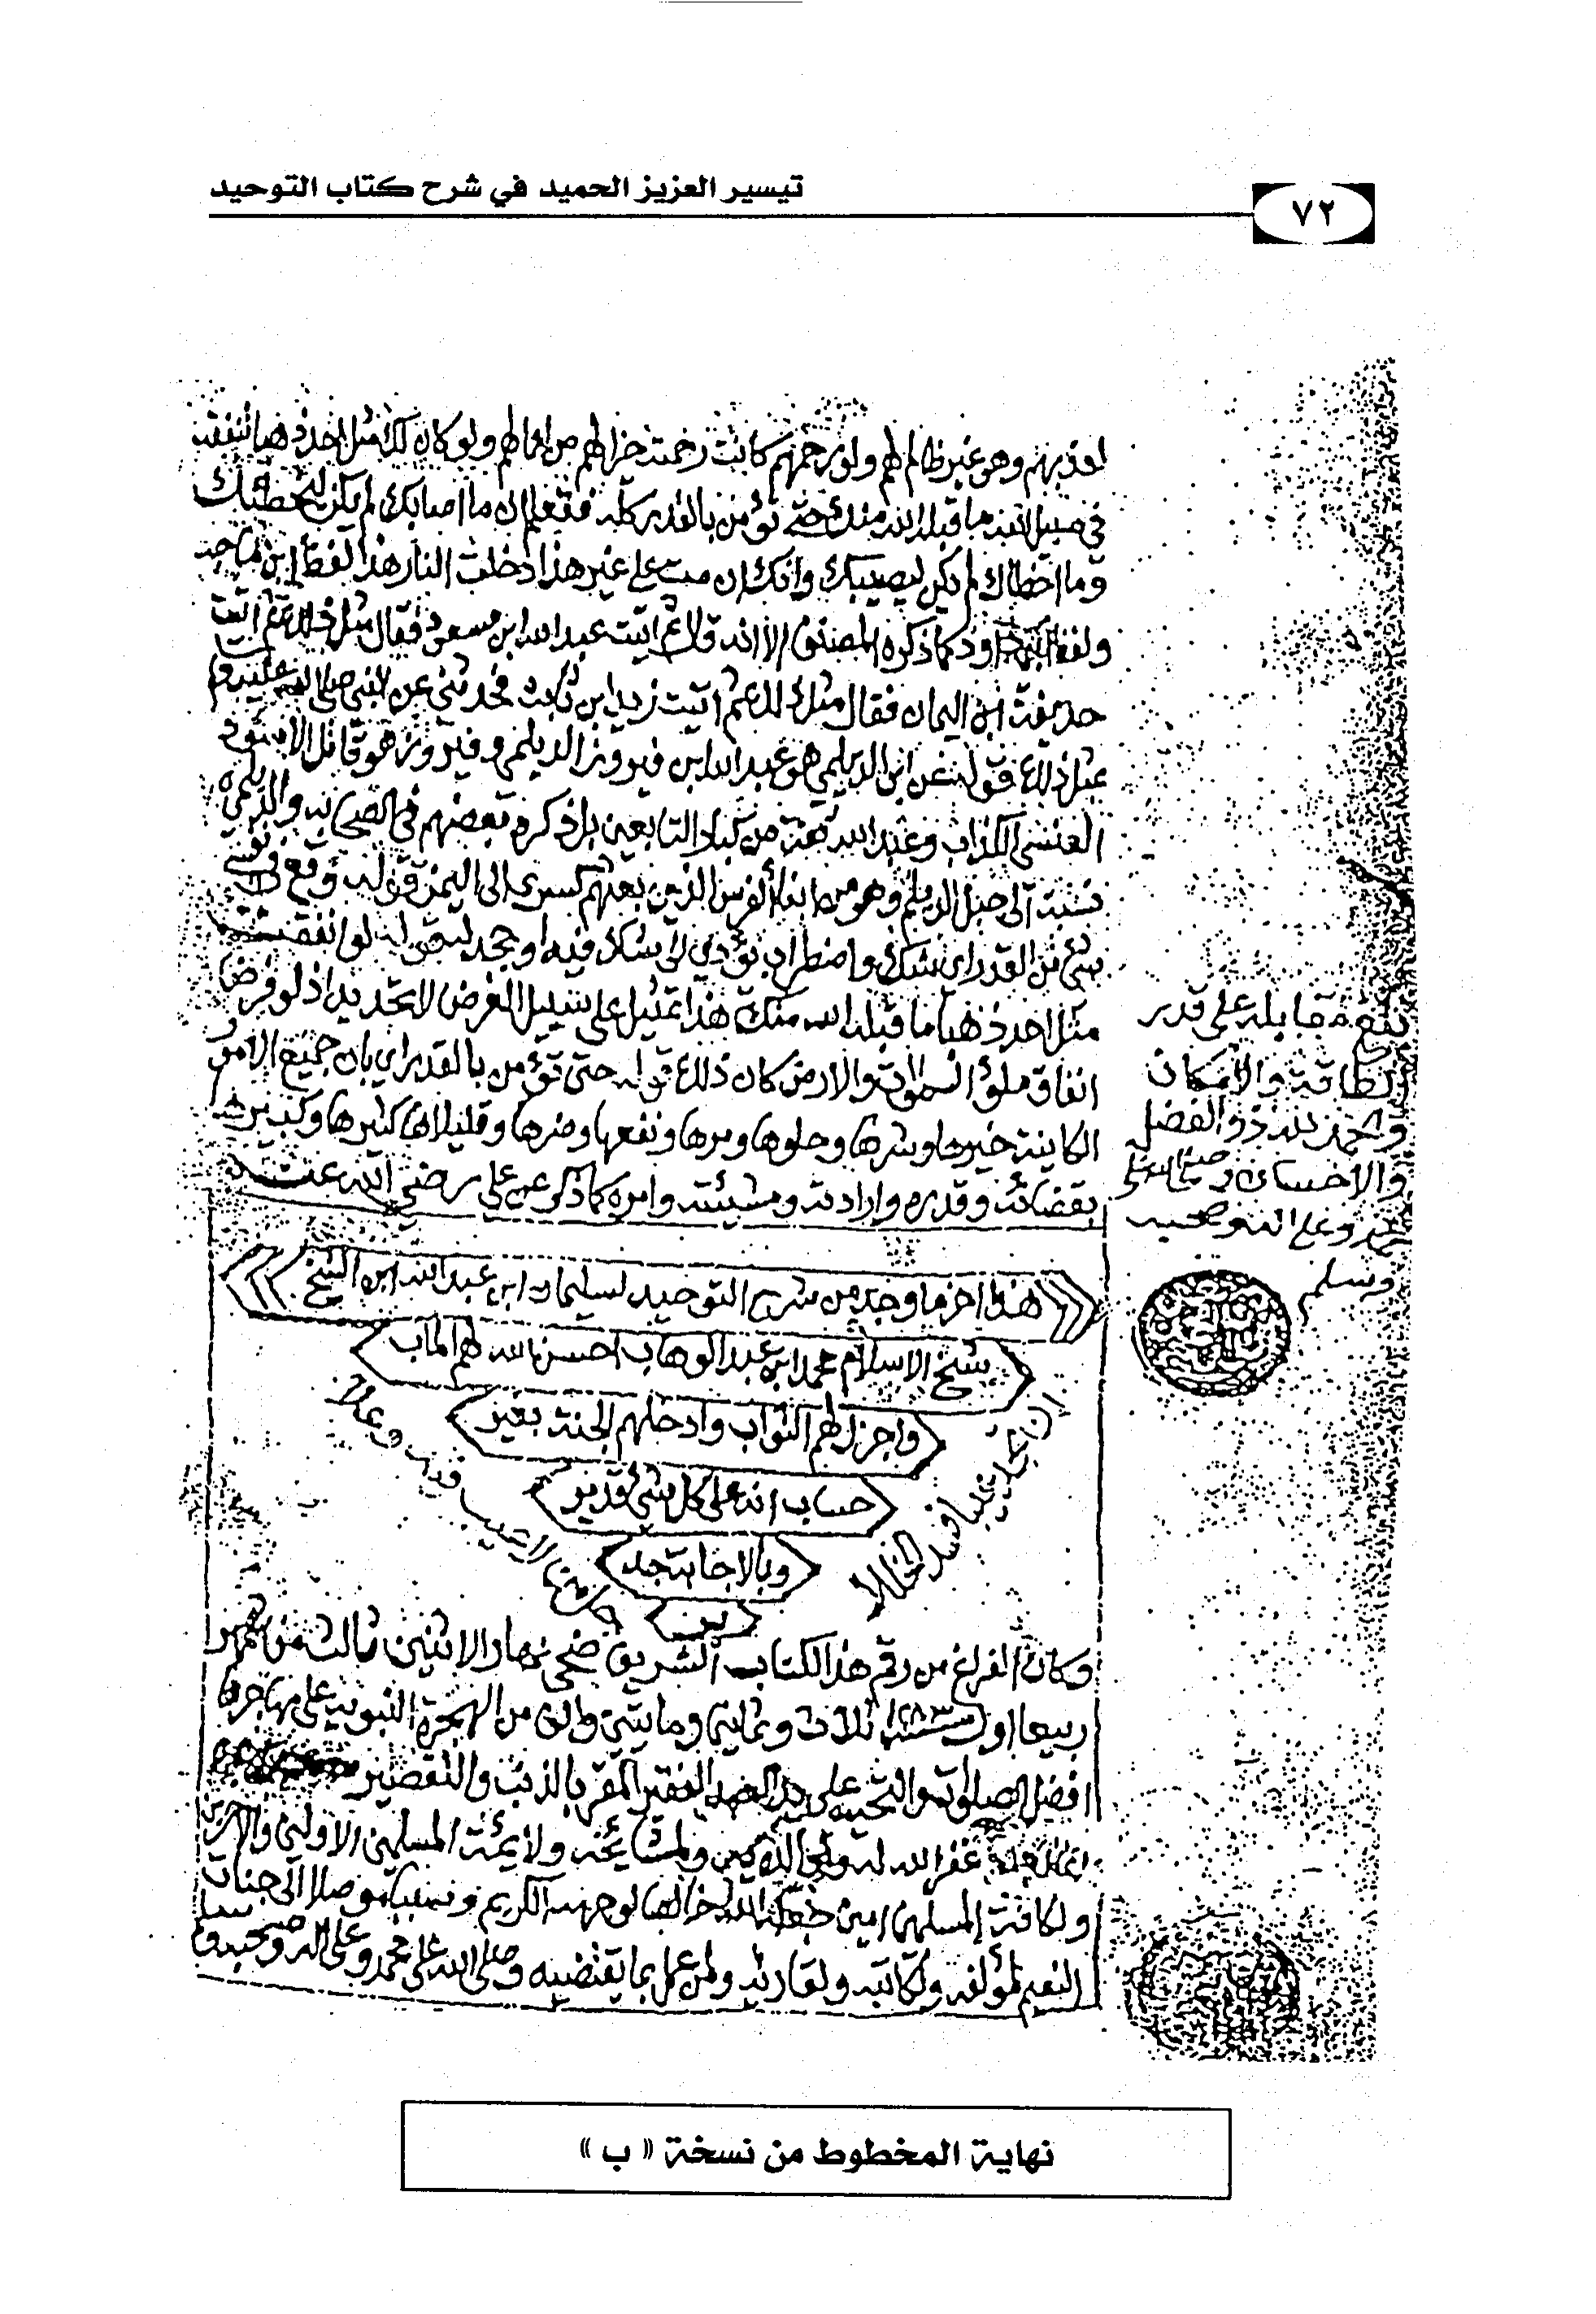 تيسير العزيز الحميد في شرح كتاب التوحيد
٧٢
لعذبهم وهو غير ظالم لهم ولو رحمهم كانت رحمته خيرا لهم من اعمالهم ولو كان لك مثل احد ذهبا تنفقه
في سبيل الله ما قبله الله منك حتى تؤمن بالقدر كله فتعلم ان ما اصابك لم يكن ليخطئك
وما اخطاك لم يكن ليصيبك وانك ان مت على غير هذا دخلت النار هذا لفظ ابن ماجه
ولفظ ابي داود كما ذكره المصنف الا انه قال ثم اتيت عبد الله ابن مسعود فقال مثل ذلك ثم اتيت
حذيفة ابن اليمان فقال مثل ذلك ثم اتيت زيد ابن ثابت فحدثني عن النبي صلى الله عليه وسلم
بمثل ذلك قوله عن ابن الديلمي هو عبد الله ابن فيروز الديلمي وفيروز هو قاتل الاسود
العنسي الكذاب وعبد الله ثقة من كبار التابعين بل ذكره بعضهم في الصحابه والديلمي
نسبة الى جبل الديلم وهو من ابناء الفرس الذين بعثهم كسرى الى اليمن قوله وقع في نفسي
شئ من القدر اي شك واضطراب يؤدي الى شك فيه او جحد له قوله لو انفقت
مثل احد ذهبا ما قبله الله منك هذا تمثيل على سبيل الفرض لا تحديد اذ لو فرض
انفاق ملؤ السموات والارض كان ذلك قوله حتى تؤمن بالقدر اي بان جميع الامور
الكاينة خيرها وشرها وحلوها ومرها ونفعها وضرها وقليلها وكثيرها وكبيرها
بقضائه وقدره وارادته ومشيئته وامره كما ذكر عن علي رضي الله عنه
بلغ مقابلة على قدر
الطاقة والامكان
والحمد لله ذو الفضل
والاحسان وصلى الله على
محمد وعلى اله وصحبه
وسلم
هذا اخر ما وجد من شرح التوحيد لسليمان ابن عبد الله ابن الشيخ
شيخ الاسلام محمد ابن عبد الوهاب احسن الله لهم المآب
واجزل لهم الثواب وادخلهم الجنة بغير
حساب انه على كل شي قدير
وبالاجابة جد
ير
ان تجد عيبا فسد الخللا
جل من لا عيب فيه وعلا
وكان الفراغ من رقم هذا الكتاب الشريف ضحى نهار الاثنين ثالث من شهر
ربيع اول سنة ١٢٨٣ ثلاث وثمانين ومايتين والف من الهجرة النبويه على مهاجرها
افضل الصلوة والتحيه على يد العبد الفقير المقر بالذنب والتقصير
غفر الله له ولوالديه ولمشايخه ولائمة المسلمين الاولين والاخرين
ولكافة المسلمين امين جعله الله خالصا لوجهه الكريم وسببا موصلا الى جنات
النعيم لمؤلفه ولكاتبه ولقاريه ولمن عمل بما يقتضيه وصلى الله على محمد وعلى اله وصحبه وسلم
نهاية المخطوط من نسخة « ب »